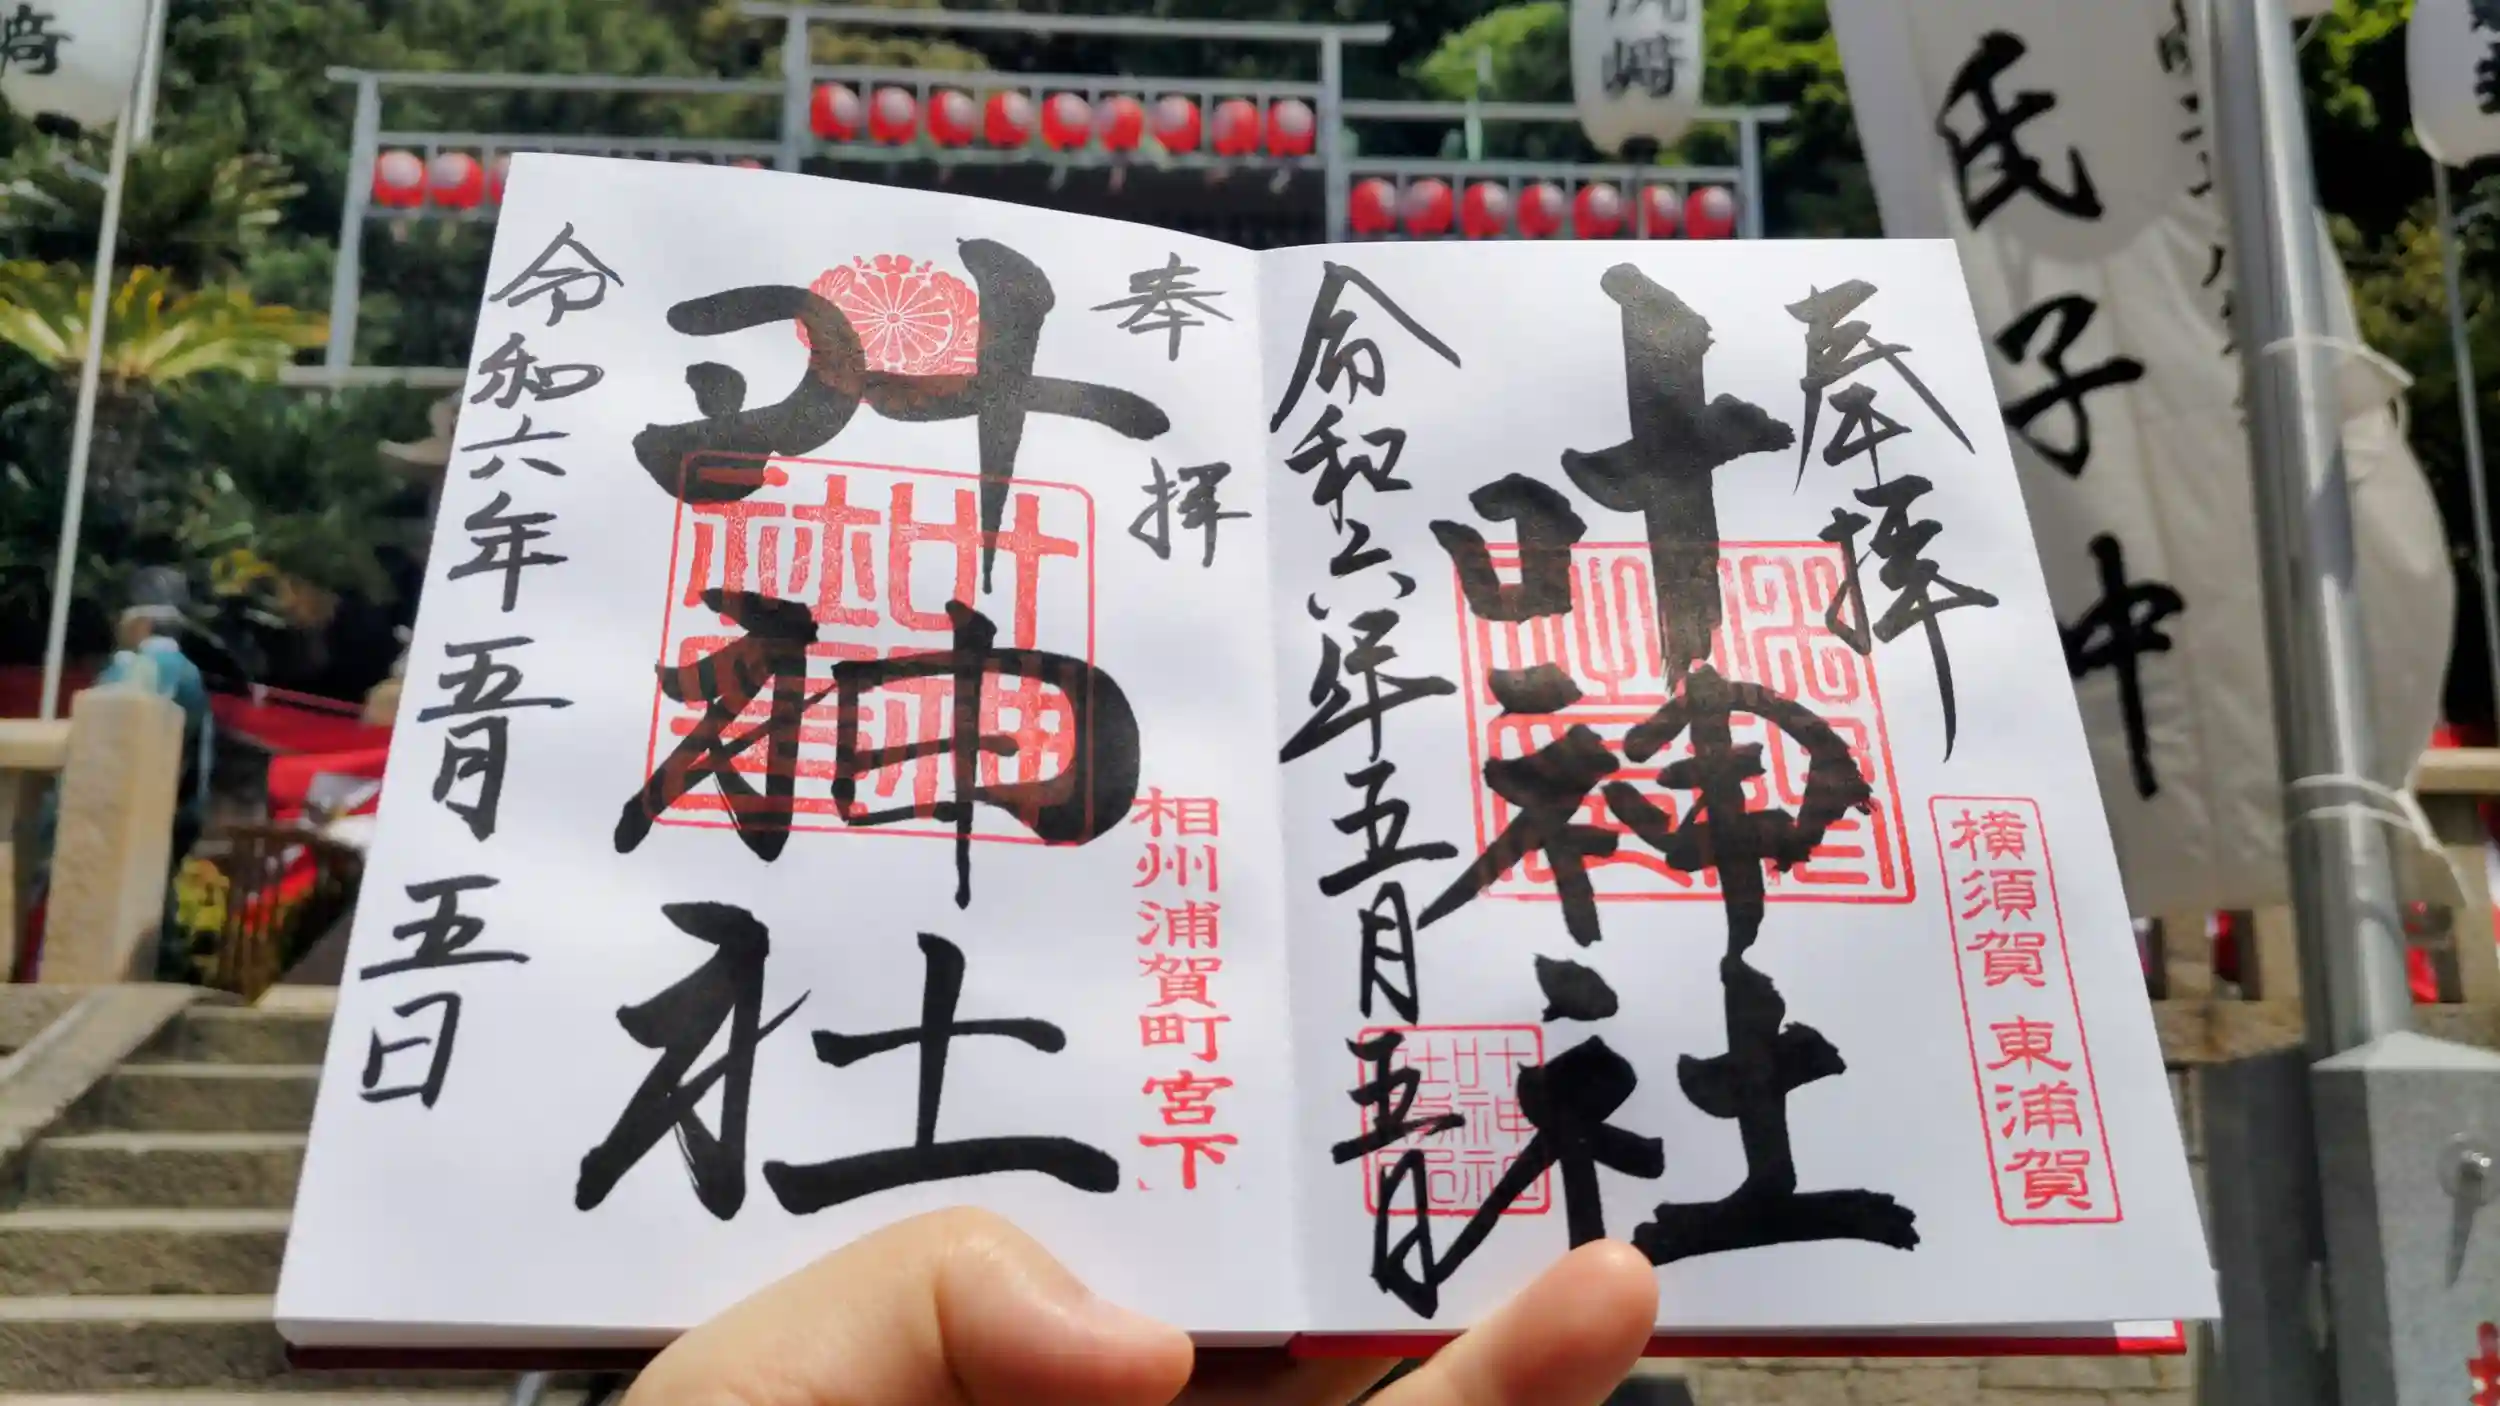 氏子中
奉拝
横須賀 東浦賀
叶神社
令和六年五月五日
奉拝
相州浦賀町宮下
叶神社
令和六年五月五日
崎
﨑